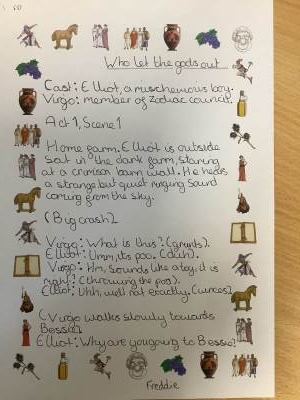 Who let the gods out
Cast: Elliot, a mischievous boy.
Virgo: member of Zodiac council.
Act 1, Scene 1
Home farm. Elliot is outside
sat in the dark farm, staring
at a crimson barn wall. He hears
a strange but quiet ringing sound
coming from the sky.
(Big crash)
Virgo: What is this? (grunts).
Elliot: Umm, its poo. (duh).
Virgo: Hm, sounds like a toy, it is
right? (throwing the poo).
Elliot: Uhh, well not exactly. (winces)
(Virgo walks slowly towards
Bessie)
Elliot: Why are you going to Bessie?
Freddie